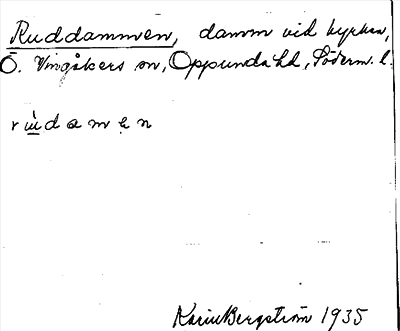 Ruddammen, damm vid kyrkan,
Ö. Vingåkers sn, Oppunda hd, Söderm. l.
rùdamen
Karin Bergström 1935